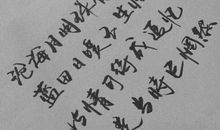 沧海月明珠
蓝田日暖玉生
此情可待成追忆
是当時已惘然